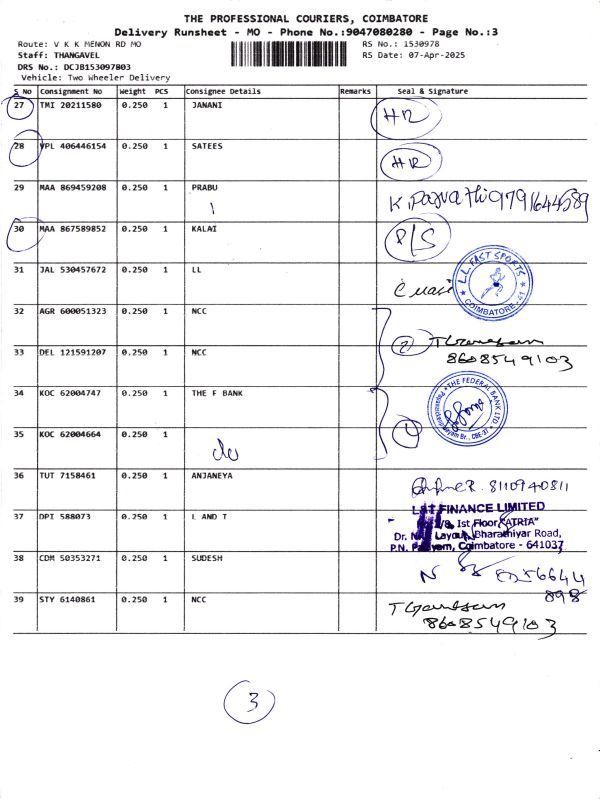 THE PROFESSIONAL COURIERS, COIMBATORE
Delivery Runsheet - MO - Phone No.:9047080280 - Page No.:3
Route: V K K MENON RD MO RS No.: 1530978
Staff: THANGAVEL RS Date: 07-Apr-2025
DRS No.: DCJB153097803
Vehicle: Two Wheeler Delivery
S No Consignment No Weight PCS Consignee Details Remarks Seal & Signature
27 TMI 20211580 0.250 1 JANANI HR
28 VPL 406446154 0.250 1 SATEES HR
29 MAA 869459208 0.250 1 PRABU 9791644589
30 MAA 867589852 0.250 1 KALAI P/S
31 JAL 530457672 0.250 1 LL
L.L. FAST SPORTS
COIMBATORE-41
32 AGR 600051323 0.250 1 NCC
2
33 DEL 121591207 0.250 1 NCC 8608549103
34 KOC 62004747 0.250 1 THE F BANK
THE FEDERAL BANK LTD.
1
35 KOC 62004664 0.250 1 do
36 TUT 7158461 0.250 1 ANJANEYA 8110940811
37 DPI 588073 0.250 1 L AND T
L&T FINANCE LIMITED
1st Floor "ATRIA"
Dr. Layout, Bharathiyar Road,
P.N. Coimbatore - 641037
38 CDM 50353271 0.250 1 SUDESH
898
39 STY 6140861 0.250 1 NCC
8608549103
3